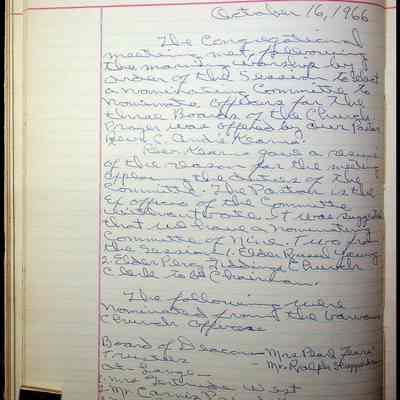 October 16, 1966
The Congregational
meeting met, following
the morning worship by
order of the Session to elect
a nominating Committee to
nominate officers for the
three Boards of the Church.
Prayer was offered by our Pastor
Rev. Kearns.
Rev. Kearns gave a resume
of the reason for the meeting
the duties of the
Committee. The Pastor is the
Ex officio of the Committee
without vote. It was suggested
that we have a nominating
Committee of Nine. Two from
the Session. 1. Elder Russel Young
2. Elder Church
Clerk to be Chairman.
The following were
nominated from the various
Church Offices
Board of Deacons - Mrs Pearl
Trustees - Mr. Ralph
At Large -
1. Mrs Gertrude West
2. Mr.